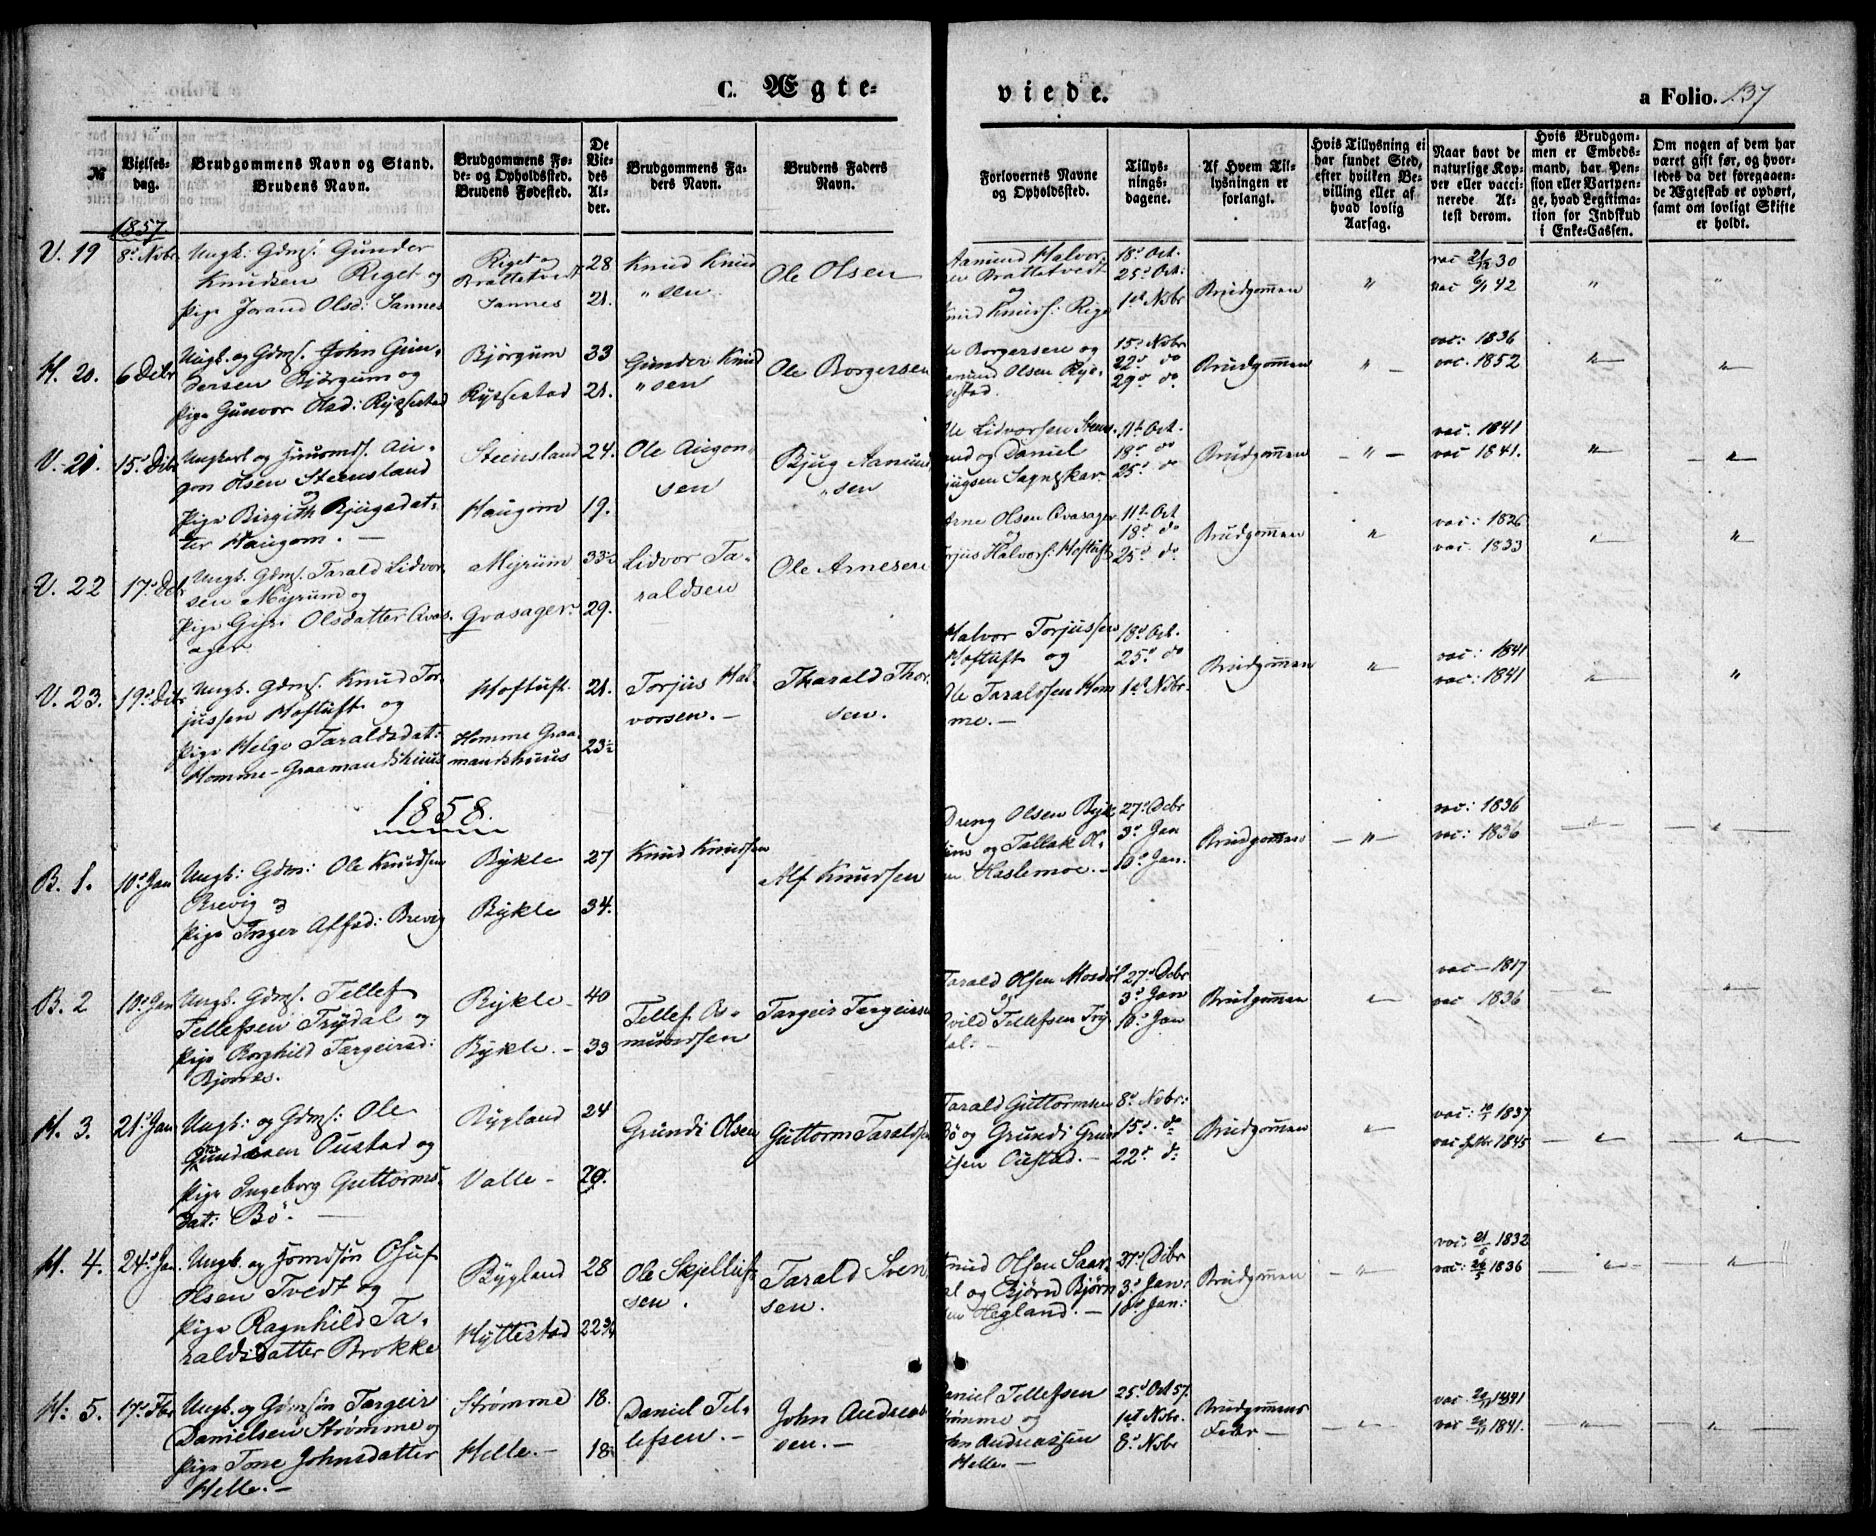 C. Ægte-
viede.
a Folio. 137
№
Vielses-
dag.
Brudgommens Navn og Stand.
Brudens Navn.
Brudgommens Fø-
de- og Opholdssted.
Brudens Fødested.
De
Vie-
des
Al-
der.
Brudgommens Fa-
ders Navn.
Brudens Faders
Navn.
Forlovernes Navne
og Opholdssted.
Tillys-
nings-
dagene.
Af Hvem Til-
lysningen er
forlangt.
Hvis Tillysning ei
har fundet Sted,
efter hvilken Be-
villing eller af
hvad lovlig
Aarsag.
Naar havt de
naturlige Kop-
per eller vacci-
nerede At-
test derom.
Hvis Brudgom-
men er Embeds-
mand, har Pen-
sion eller Vartpen-
ge, hvad Legitima-
tion for Indskud
i Enke-Cassen.
Om nogen af dem har
været gift før, og hvor-
ledes da det foregaaen-
de Ægteskab er ophørt,
samt om lovligt Skifte
er holdt.
1857
V. 19
8d Nvbr
Ungk: Gdms: Gunder
Knudsen Riget og
Pige Jorand Olsd: Sannes
Riget og
Brattetvedt
Sannes
28
21.
Knud Knud
" sen
Ole Olsen
Aamund Halvor
en Brattetvedt
og
Knud Knuds: Rige
18d Oct.
25d Oct:
1ste Nvbr
Brudgommen
"
vac 21/12 30
vac 6/11 42
"
"
H. 20.
6 Debr
Ungk. og Gdms. John Gun-
dersen Bjørgum og
Pige Gunvor Olsd: Rysstad
Bjørgum
Ryssestad
33
21.
Gunder Knud
" sen
Ole Borgersen
le Borgersen og
Aamund Olsen Rys-
estad.
15d Nvbr
22d do
29d do
Brudgommen
" -
vac: 1836
vac. 1852
"
"
V. 21.
15d Debr
Ungkarl og Huusmds. Au-
gon Olsen Steensland
og
Pige Birgith Bjugsdat-
ter Haugom. -
Steensland
Haugom
24.
19.
Ole Augon-
sen
Bjug Aamund
" sen
le Lidvorsen Steens-
and og Daniel
jugsen Sagneskar
11te Oct.
18d do
25d do
Brudgommen
- " -
vac. 1841
vac 1841.
"
- "
V. 22
17d Debr
Ungk. Gdms. Tarald Lidvor-
sen Myrum og
Pige Gyro Olsdatter Qvas-
ager
Myrum
Qvasager
33
29.
Lidvor Ta-
raldsen
Ole Arnesen
Arne Olsen Qvasager
og
Torjus Halvors: Hoftuft
11te Oct
18d do
25d do
Brudgommen
"
vac: 1826
vac: 1833
"
"
V. 23.
19d Debr
Ungk. Gdms. Knud Tor-
jussen Hoftuft og
Pige Helge Taraldsdat:
Homme-Graamandshuus
Hoftuft
Homme Graa-
mandshuus
21.
23
Torjus Hal-
vorsen. -
Tharald Thor-
sen.
Halvor Torjussen
Hoftuft og
Ole Taraldsen Hom
me. -
18d Oct.
25d do
1ste Nvbr.
Brudgommen
"
vac: 1841
vac: 1841
"
"
1858.
B. 1.
10d Jan
Ungk: Gdms: Ole Knudsen
Brevig og
Pige Inger Alfsd: Brevig
Bykle
Bykle
27
34.
Knud Knudsen
Alf Knudsen
Dreng Olsen Byk-
lum og Tallak Ol-
sen Haslemoe. -
27d Debr
3d Jan
10d Jan.
Brudgommen
- " -
vac: 1836
vac: 1836
"
"
B. 2
10d Jan
Ungk. Gdms. Tellef
Tellefsen Trydal og
Pige Borghild Targeirsd:
Bjones.
Bykle -
Bykle. -
40
33
Tellef As-
mundsen
Targeir Targeirsen
Tarald Olsen Mosdøl
og
vild Tellefsen Try
dal. -
27d Debr
3d Jan
10d Jan
Brudgommen
"
vac - 1817
vac 1836
"
"
H. 3.
21d Jan
Ungk: og Gdms: Ole
Grundesen Oustad og
Pige Ingeborg Guttorms-
dat: Bö. -
Bygland
Valle -
24
20.
Grundi Olsen
Guttorm Taraldsen
Tarald Guttormsen
Bö og Grundi Grund
isen Oustad. -
8d Nvbr:
15d do
22d do
Brudgommen
"
vac: 1837
vac 1845
"
"
H. 4.
24d Jan.
Ungk. og Jomdsøn Osuf
Olsen Tvedt og
Pige Ragnhild Ta-
raldsdatter Brokke
Bygland
Hyllestad
28
22 3/4
Ole Skjelluf-
sen.
Tarald Sven
sen.
Knud Olsen Saar-
al og Bjørn Bjørn
sen Hegland. -
27d Debr
3d Jan:
10d Jan:
Brudgommen
- "
vac: 21/6 1832
vac: 26/5 1836
"
"
H: 5.
17d Fbr
Ungk. og Gdmsøn Targeir
Danielsen Strømme og
Pige Tone Johnsdatter
Helle. -
Strømme
Helle. -
18.
18
Daniel Tel-
lefsen. -
John Andreas
sen. -
Daniel Tellefsen
Strømme og
John Andreassen
Helle. -
25d Oct 57.
1ste Nvbr.
8d Nvbr
Brudgommens
Fader -
"
vac. 1841
vac 1841.
"
"